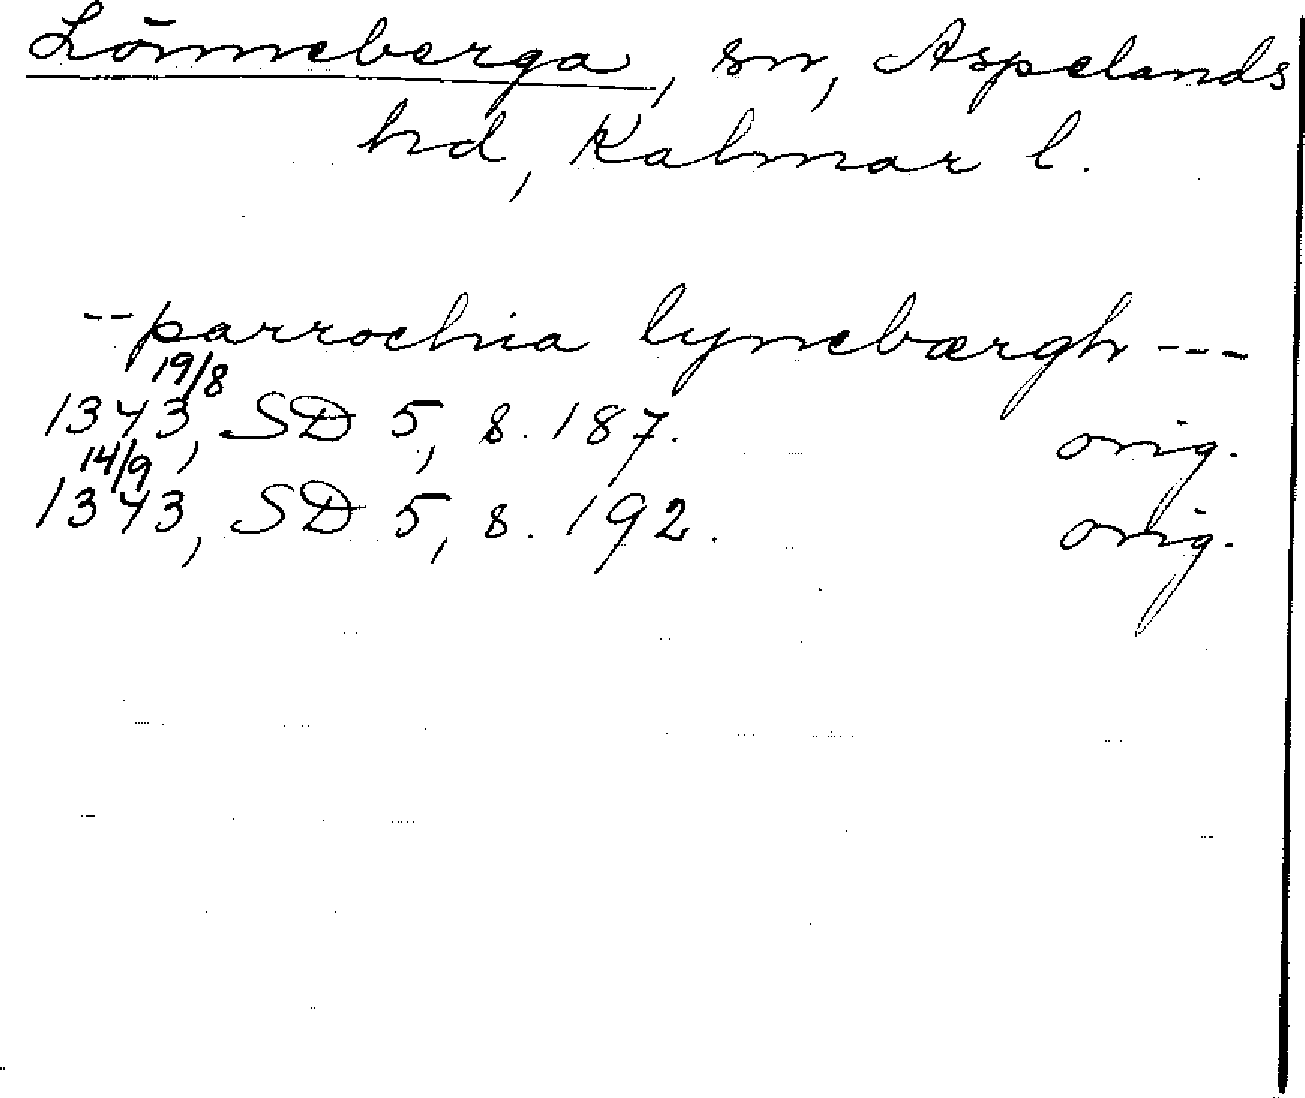 Lönneberga, sn, Aspelands
hd, Kalmar l.
-- parrochia lynebærgh ---
19/8
1343, SD 5, s. 187. orig.
14/9
1343, SD 5, s. 192. orig.